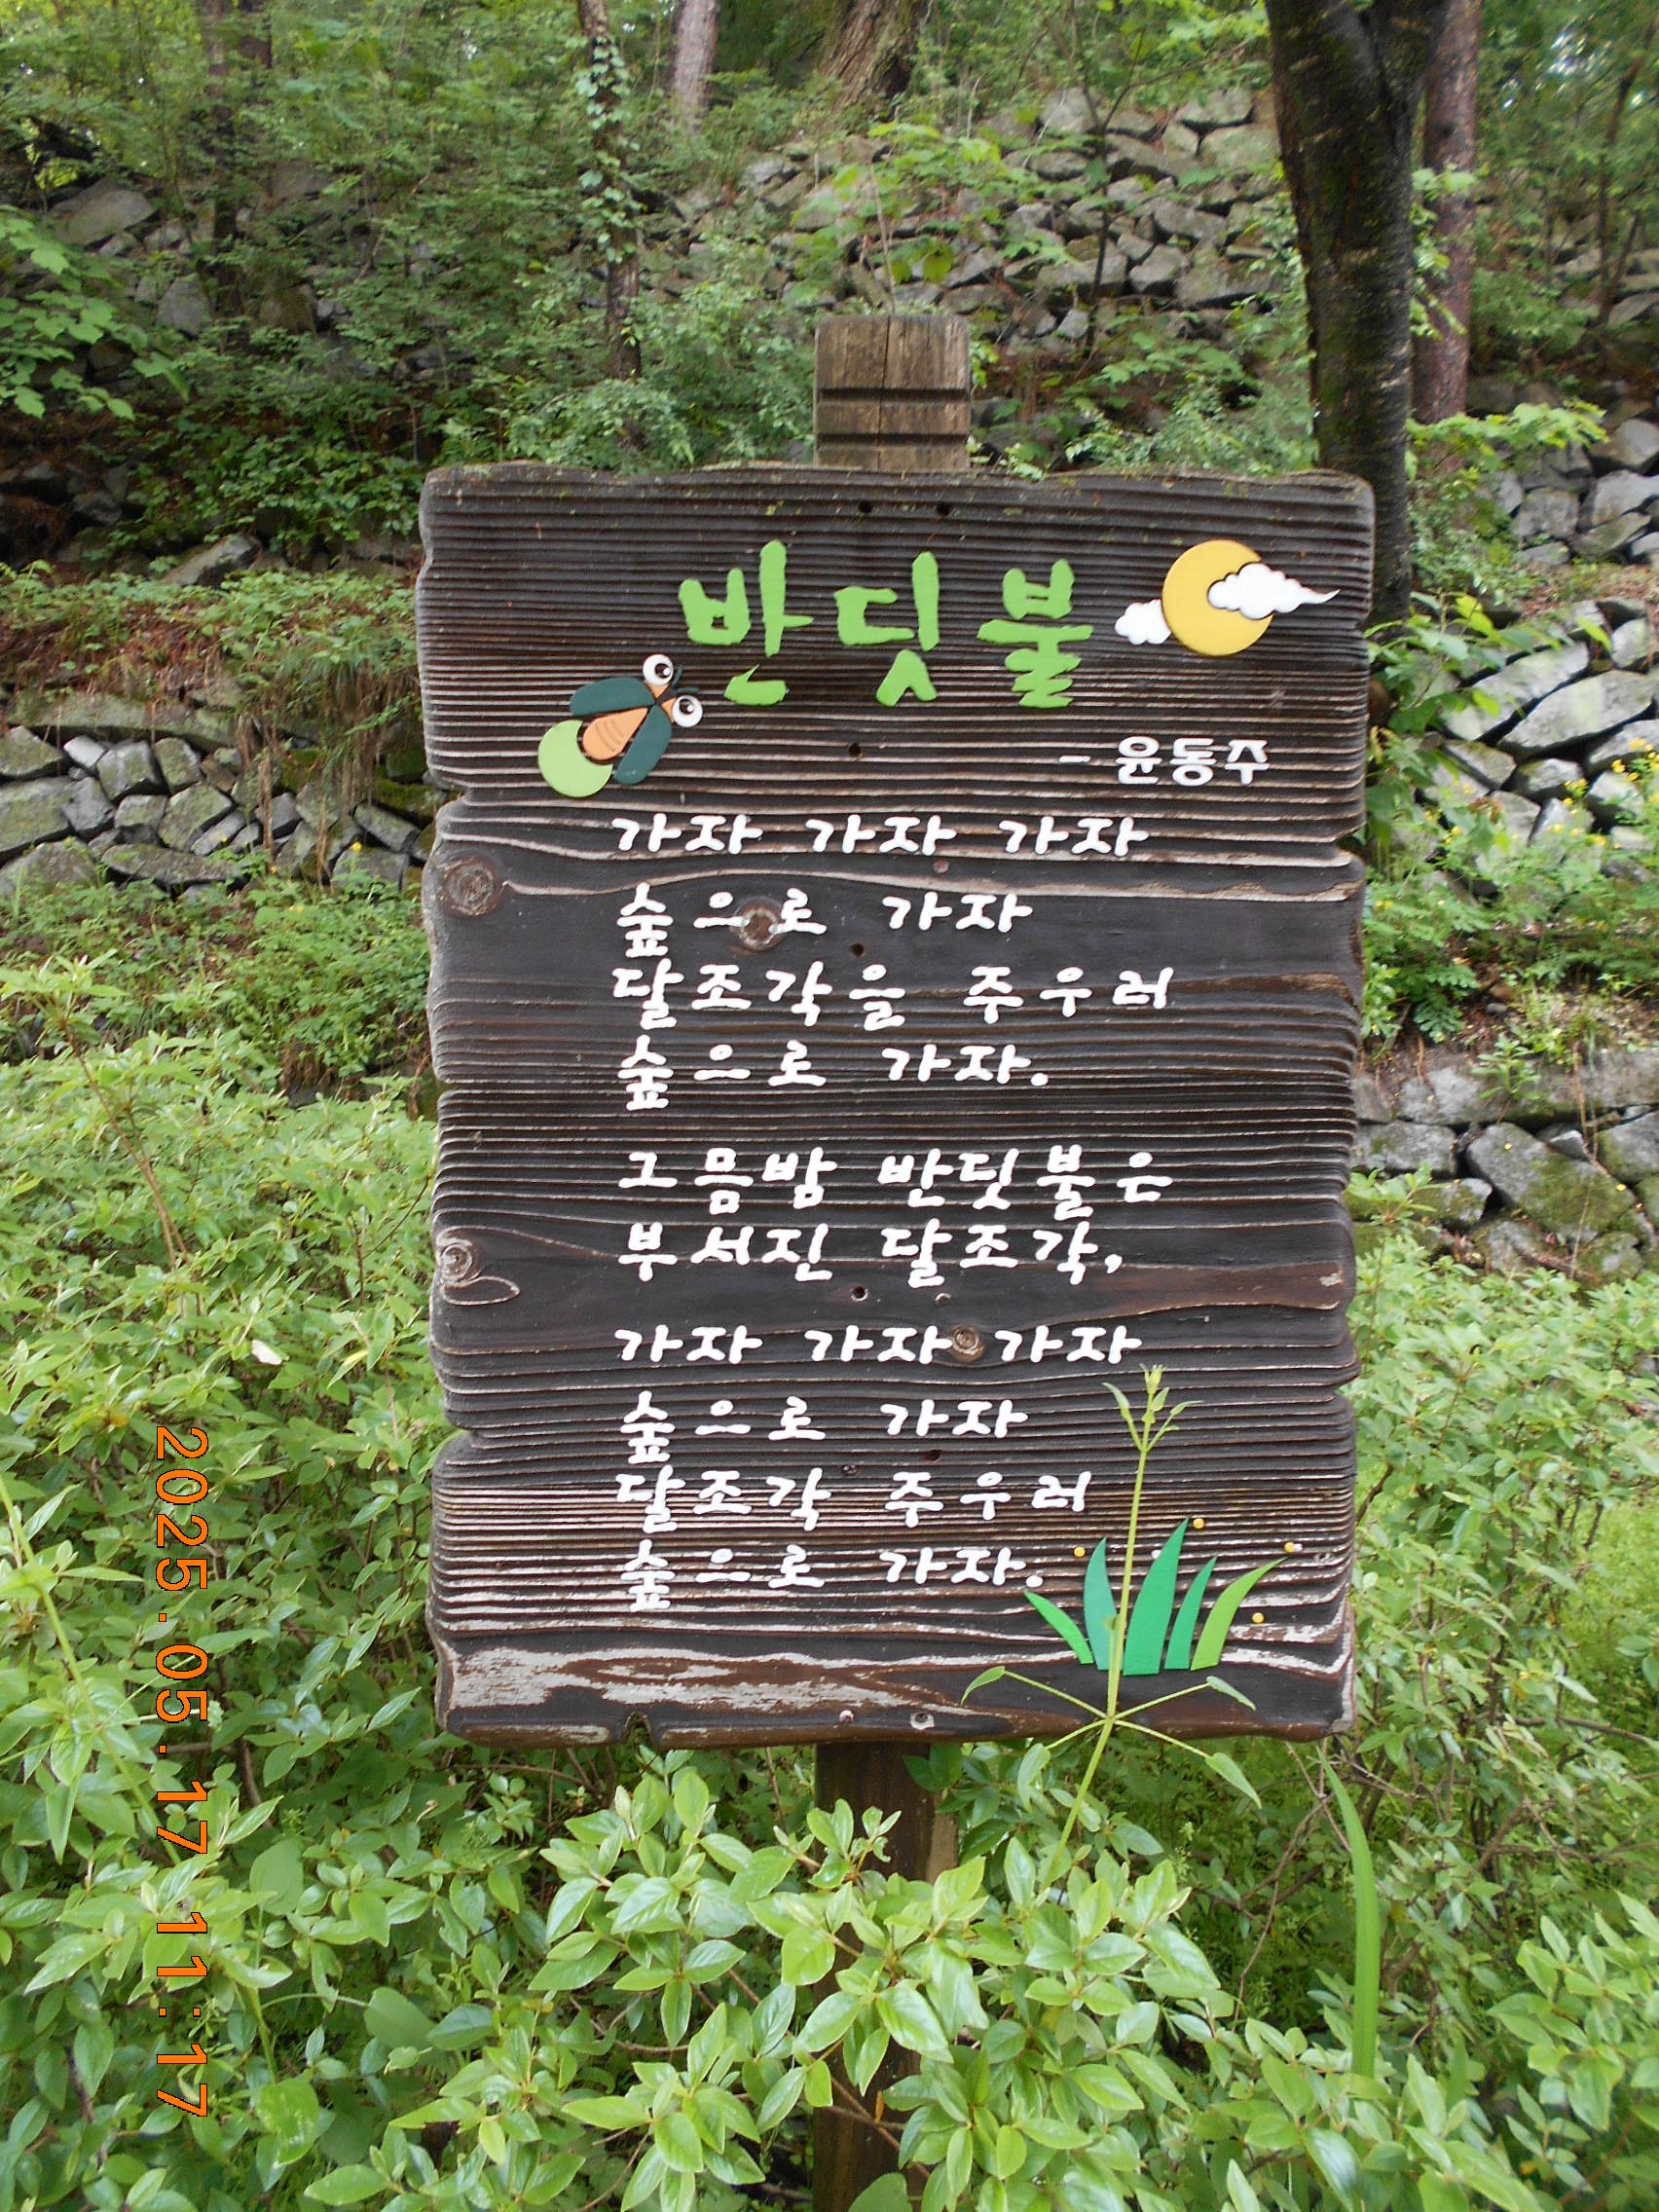 반딧불
- 윤동주
가자 가자 가자
숲으로 가자
달조각을 주우러
숲으로 가자.
그믐밤 반딧불은
부서진 달조각,
가자 가자 가자
숲으로 가자
달조각 주우러
숲으로 가자.
2025.05.17 11:17